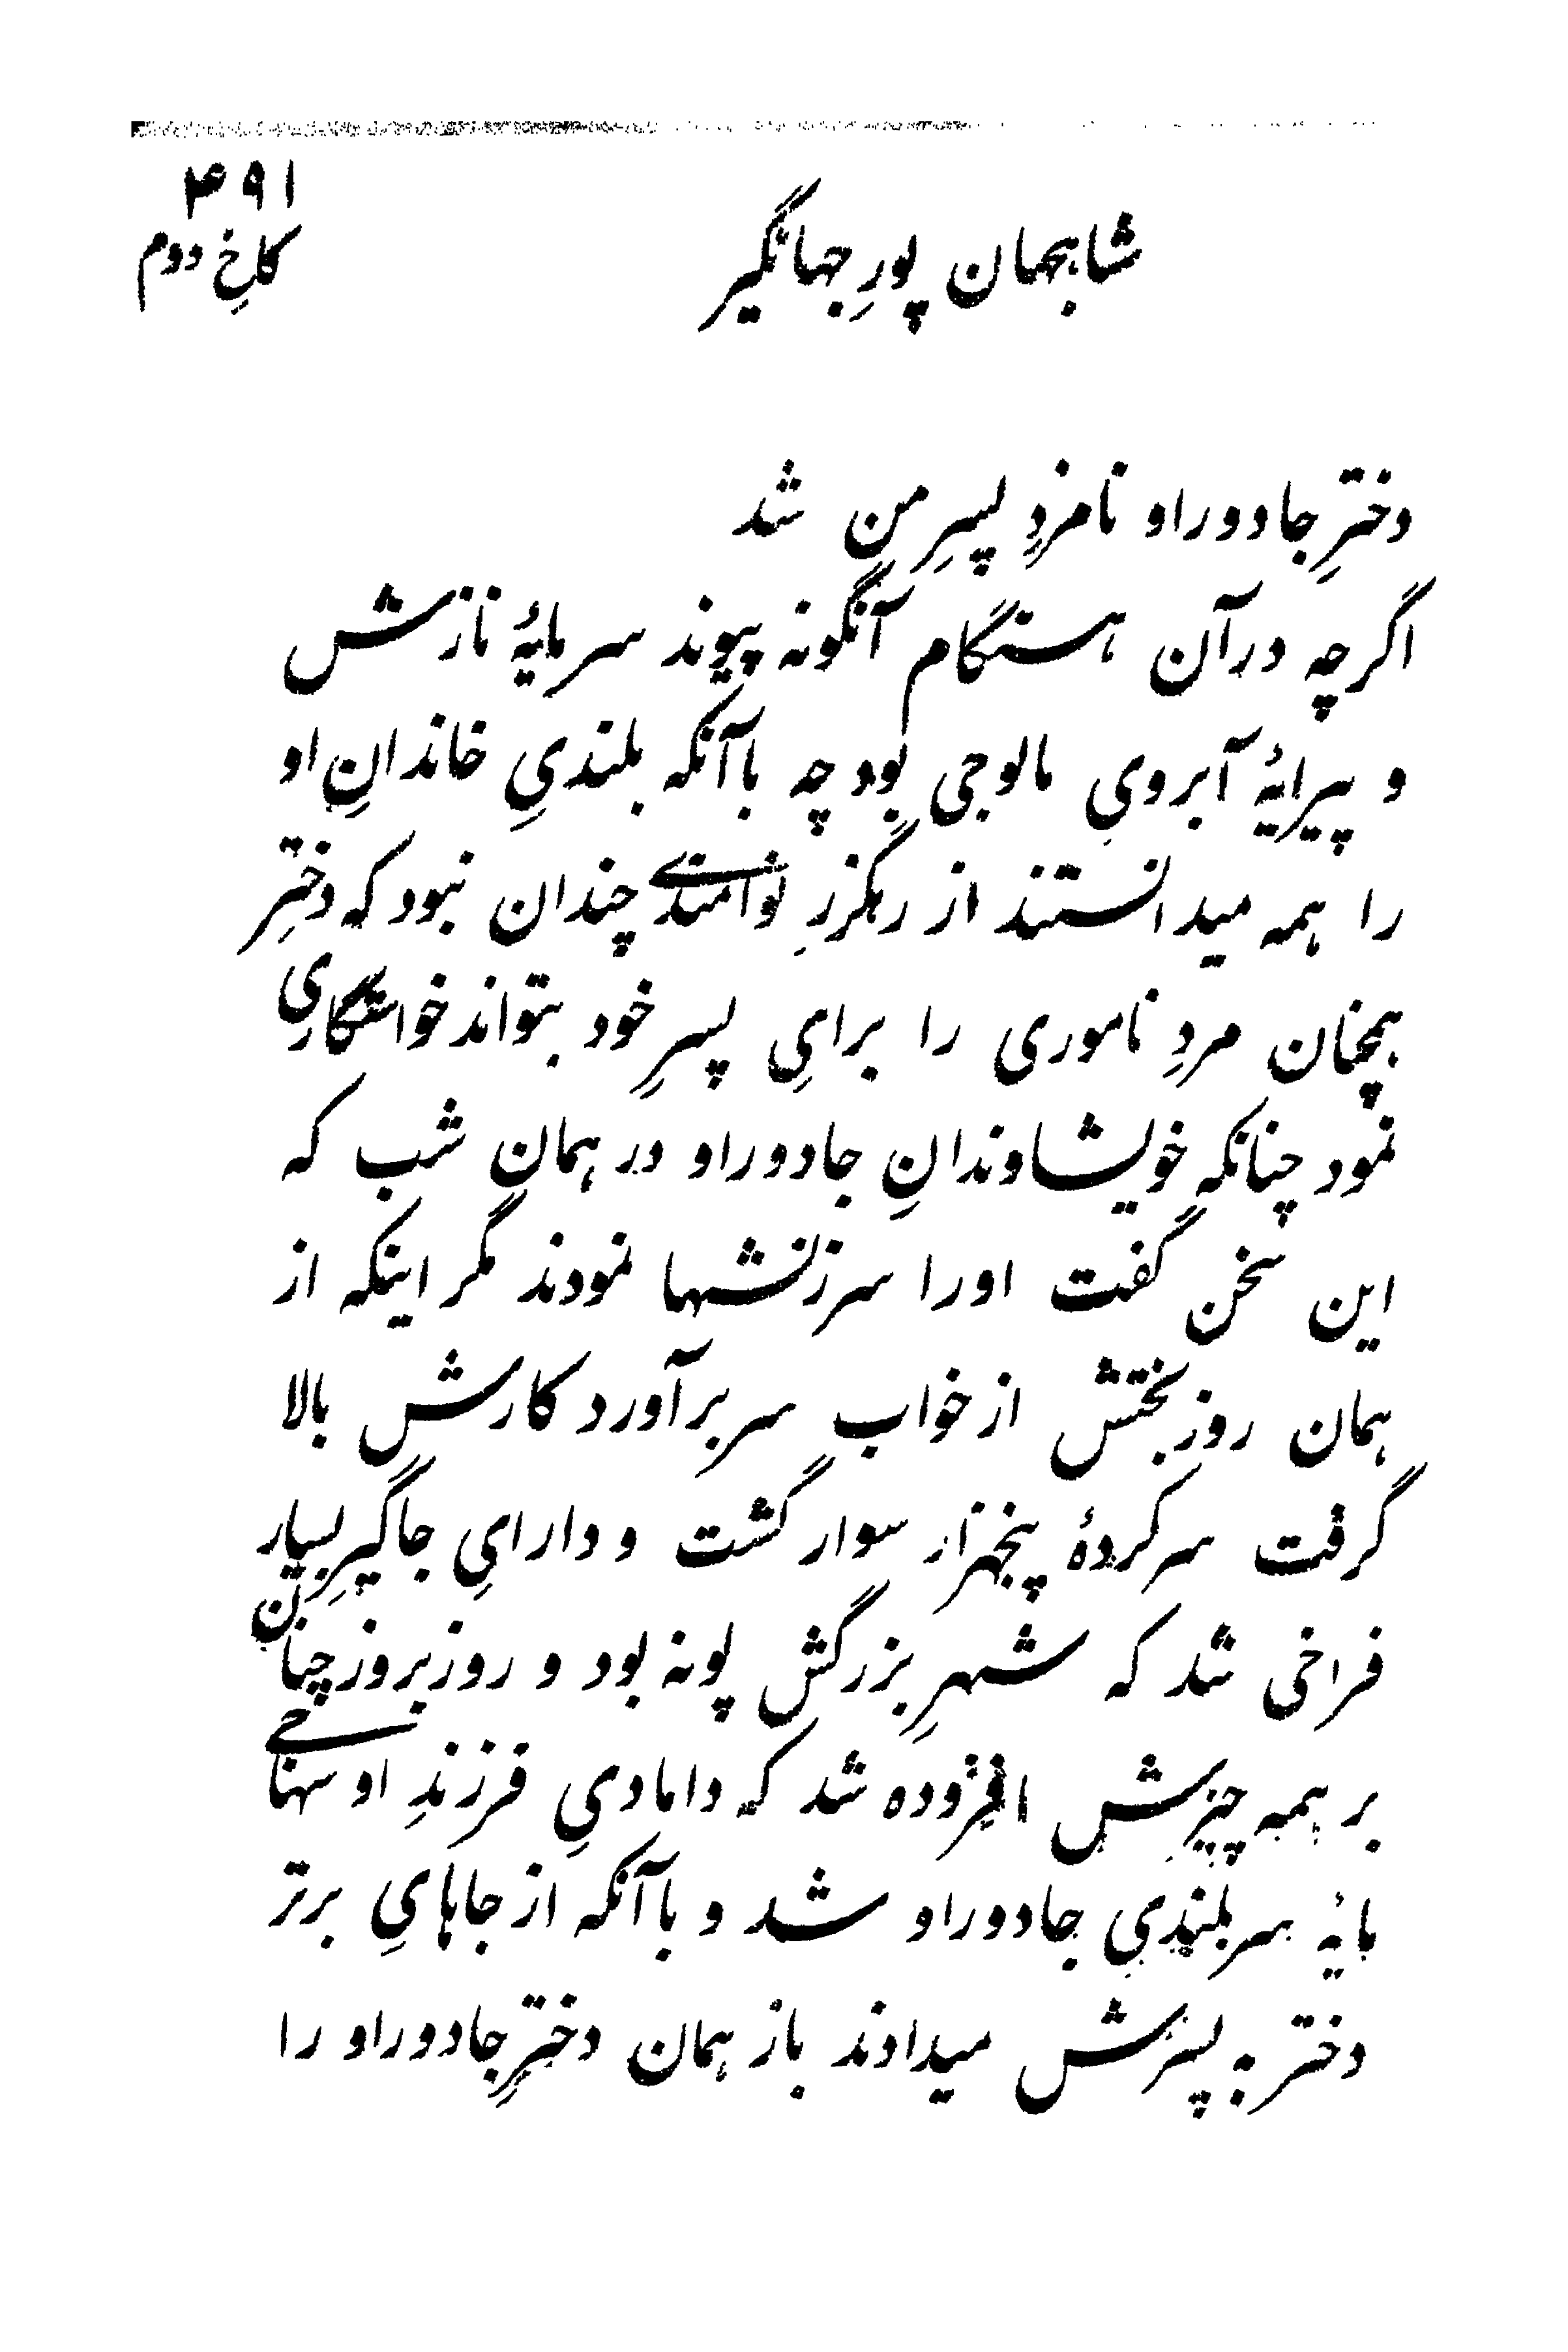 ۴۹۱
کاخِ دوم
شاهجهان پورِ جهانگیر
دخترِ جادوراو نامزدِ پسرِ من شد
اگرچه در آن هنگام آنگونه پیوند سرمایهٔ نازش
و پیرایهٔ آبرویِ مالوجی بود چه با آنکه بلندیِ خاندانِ او
را همه میدانستند از رهگزرِ توامندی چندان نبود که دخترِ
همچنان مردِ ناموری را برایِ پسرِ خود بتواند خواستگاریِ
نمود چنانکه خویشاوندانِ جادوراو در همان شب که
این سخن گفت اورا سرزنشها نمودند مگر اینکه از
همان روز بختش از خواب سر برآورد کارش بالا
گرفت سرکردهٔ پنجهزار سوار گشت و دارایِ جاگیرِ بسیار
فراخی شد که شهرِ بزرگش پونه بود و روز بروز چنان
بر همه چیزش افزوده شد که دامادیِ فرزندِ او سهاجی
مایهٔ سربلندیِ جادوراو شد و با آنکه از جاهایِ برتر
دختر به پسرش میدادند باز همان دخترِ جادوراو را